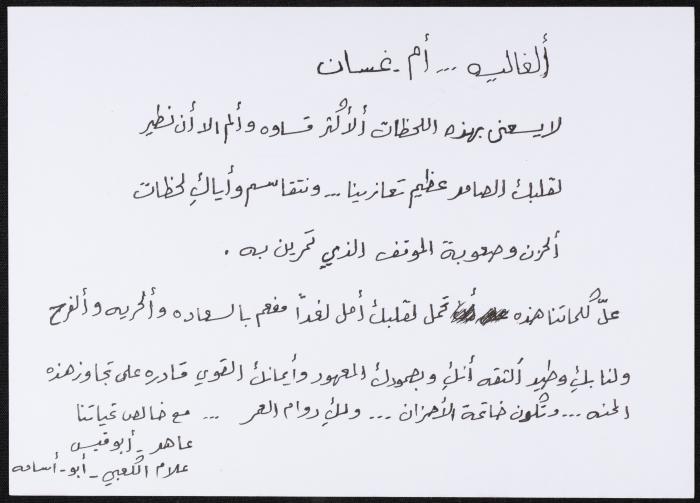 ألغاليه ... أم - غسان
لا يسعنى بهذه اللحظات ألأكثر قساوه وألم الا أن نطير
لقلبك الصامد عظيم تعازينا ... ونتقاسم وأياكِ لحظات
ألحزن وصعوبة الموقف الذي تمرين به .
علّ كلماتنا هذه تحمل لقلبك أمل لغداً مفعم بالسعاده وألحريه وألفرح
ولنا بكِ وطيد ألثقه أنكِ وبصمودك المعهود وأيمانك القوي قادره على تجاوز هذه
المحنه ... وتكون خاتمة الأحزان ... ولكِ دوام العمر ... مع خالص تحياتنا
عاهد - أبو قيس
علام الكعبي - أبو - أسامه